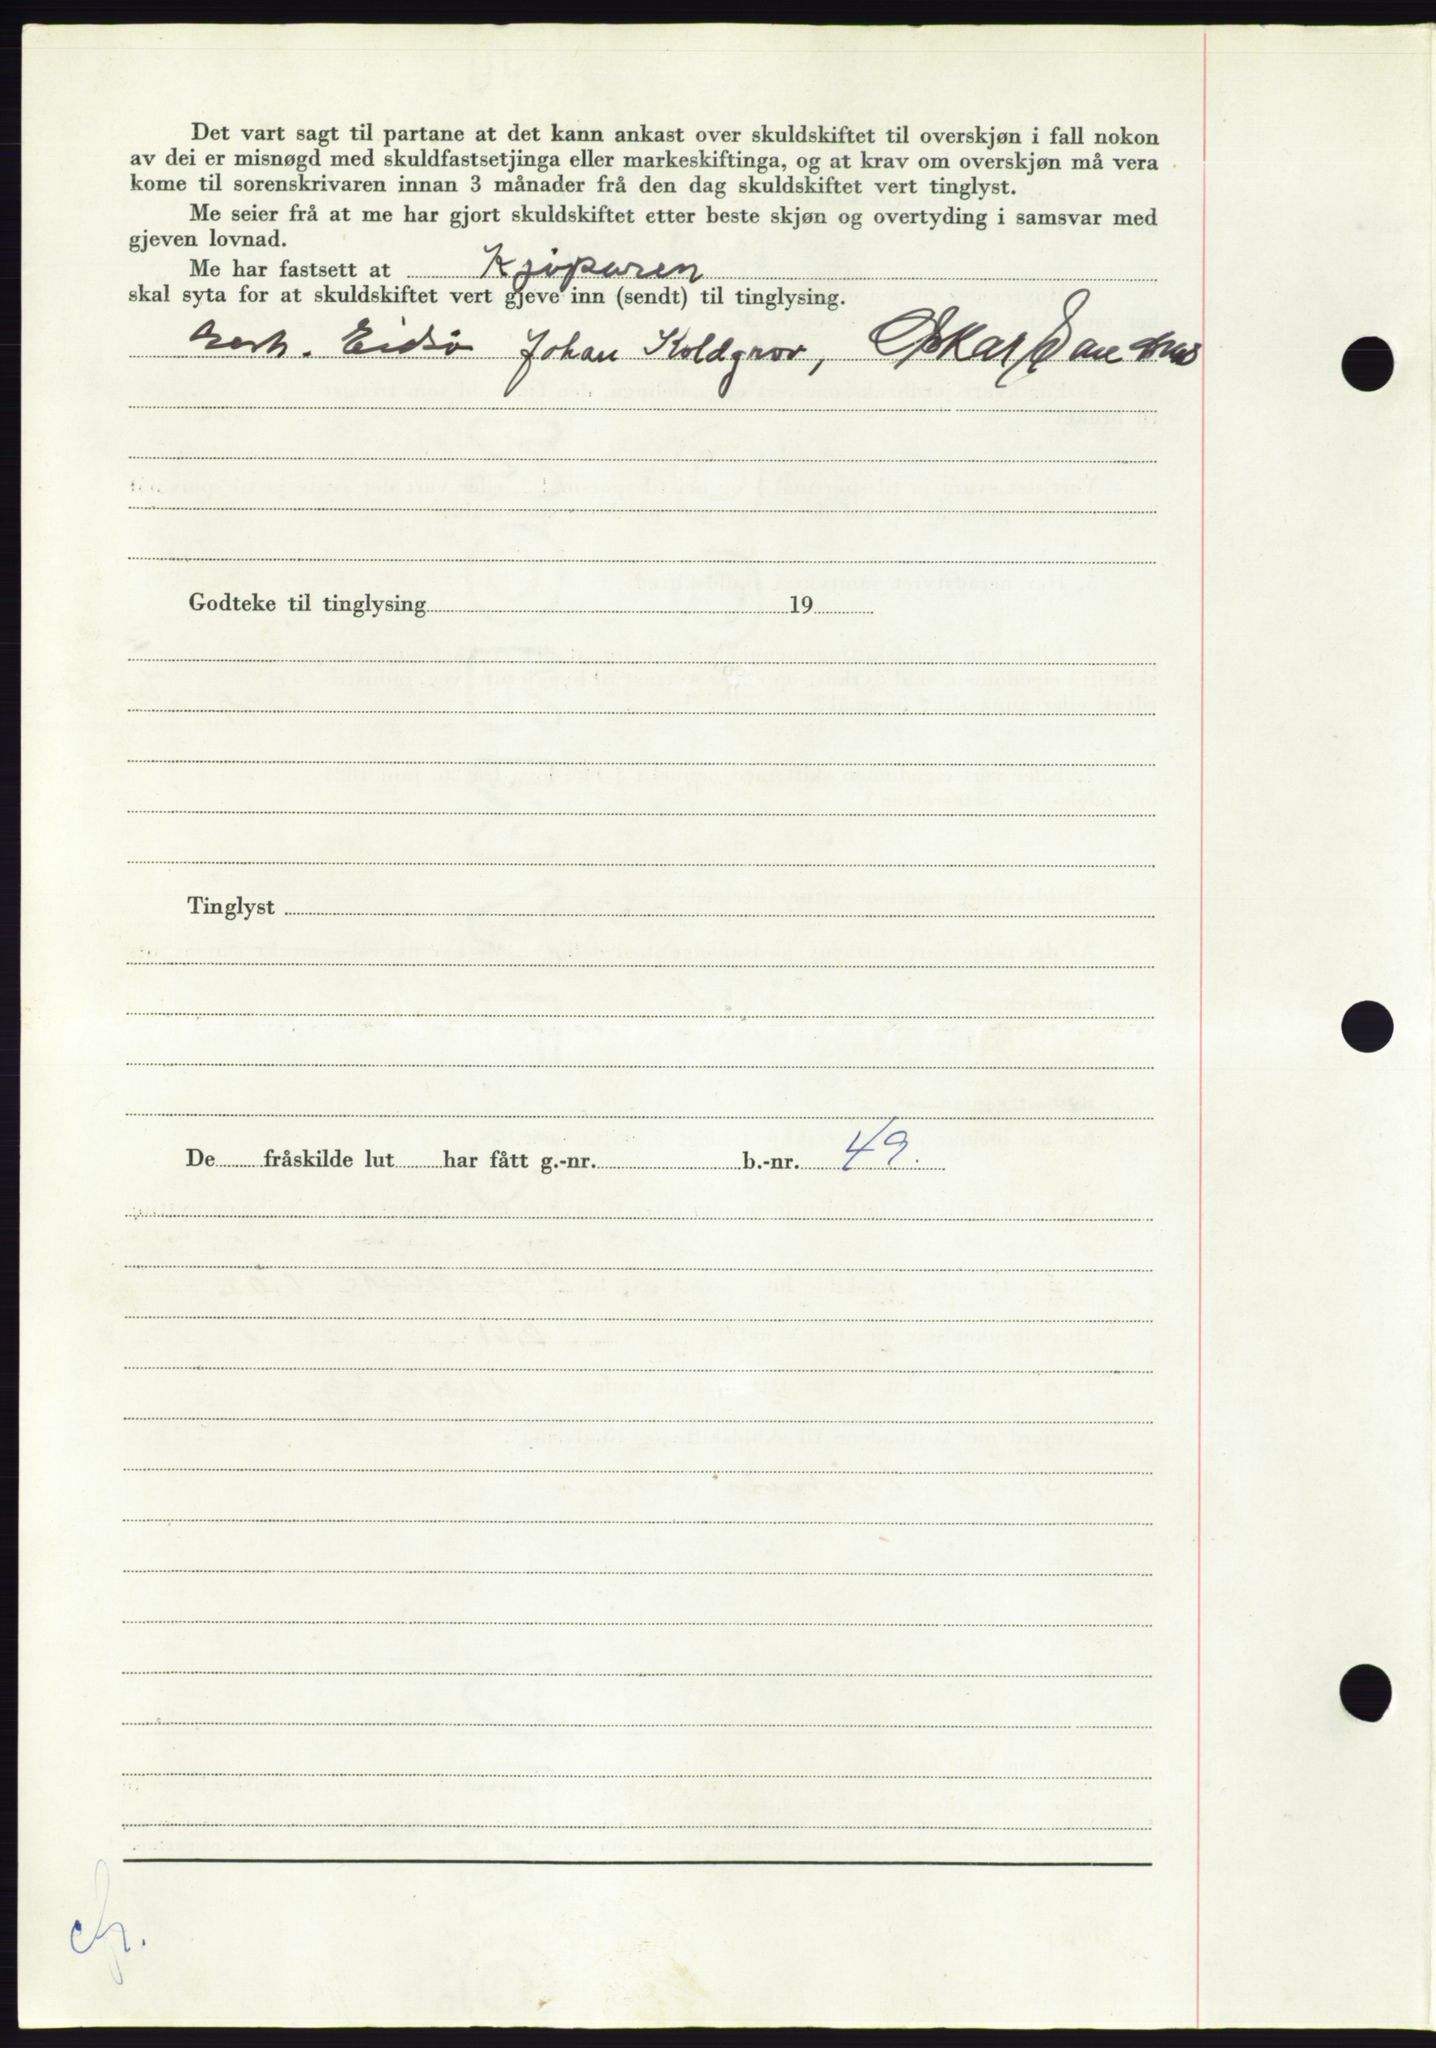 Det vart sagt til partane at det kann ankast over skuldskiftet til overskjøn i fall nokon
av dei er misnøgd med skuldfastsetjinga eller markeskiftinga, og at krav om overskjøn må vera
kome til sorenskrivaren innan 3 månader frå den dag skuldskiftet vert tinglyst.
Me seier frå at me har gjort skuldskiftet etter beste skjøn og overtyding i samsvar med
gjeven lovnad.
Me har fastsett at Kjøparen
skal syta for at skuldskiftet vert gjeve inn (sendt) til tinglysing.
Eidsø Johan Koldgrov, Oskar
Godteke til tinglysing 19
Tinglyst
De fråskilde lut har fått g.-nr. b.-nr. 49.